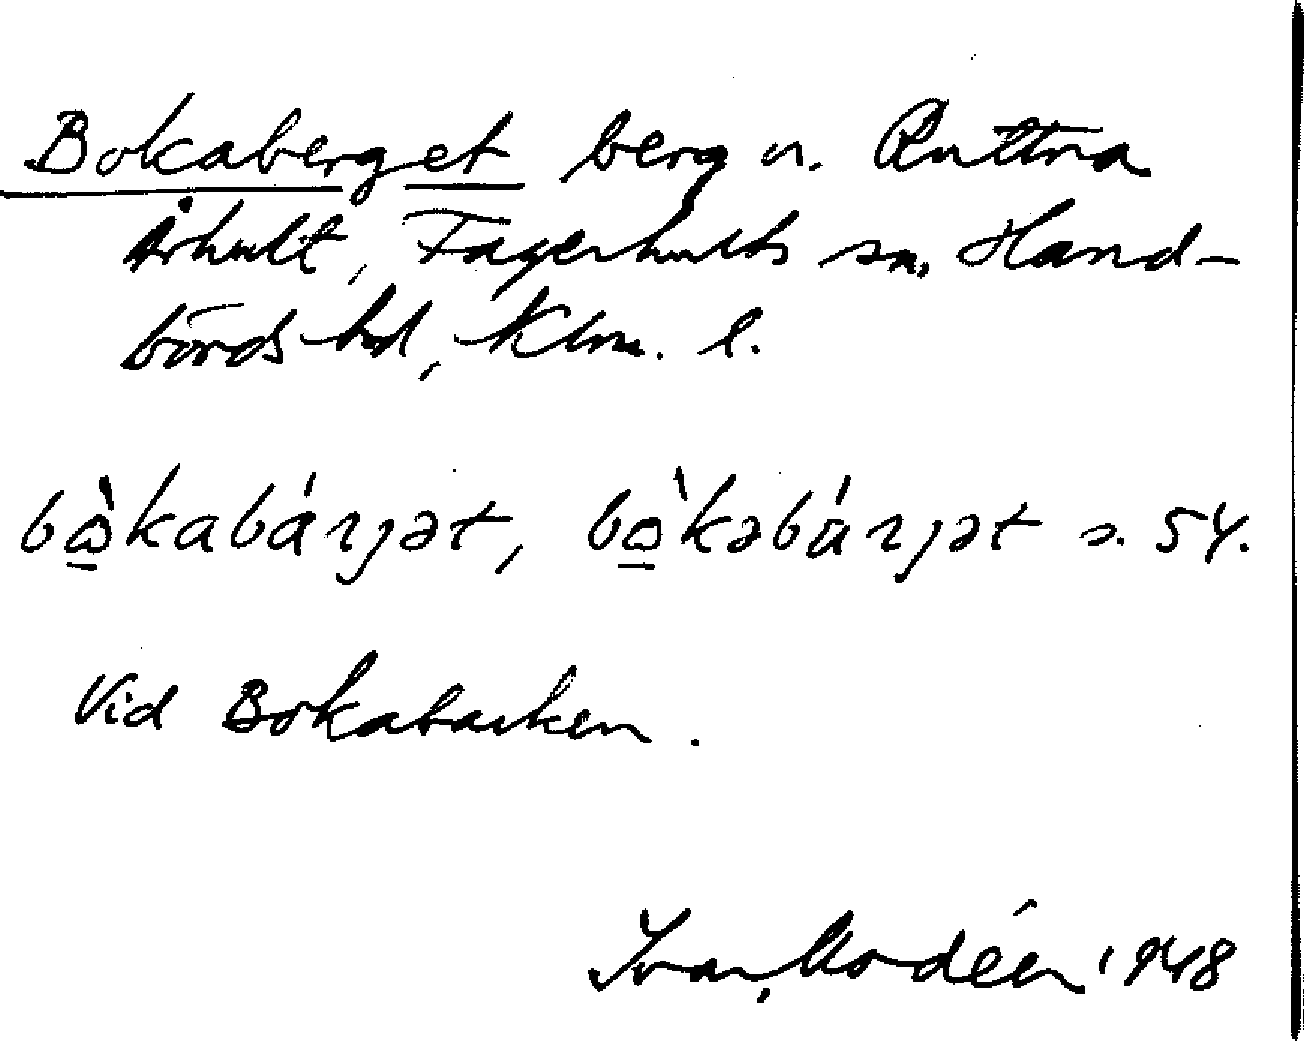 Bokaberget berg n. Ruttna
Århult, Fagerhults sn, Hand-
börds hd, Klm. l.
bo̱̊̀kabárȷət, bo̱̊̀kəbárȷət s. 54.
Vid Bokabacken.
Ivar Modéer 1948